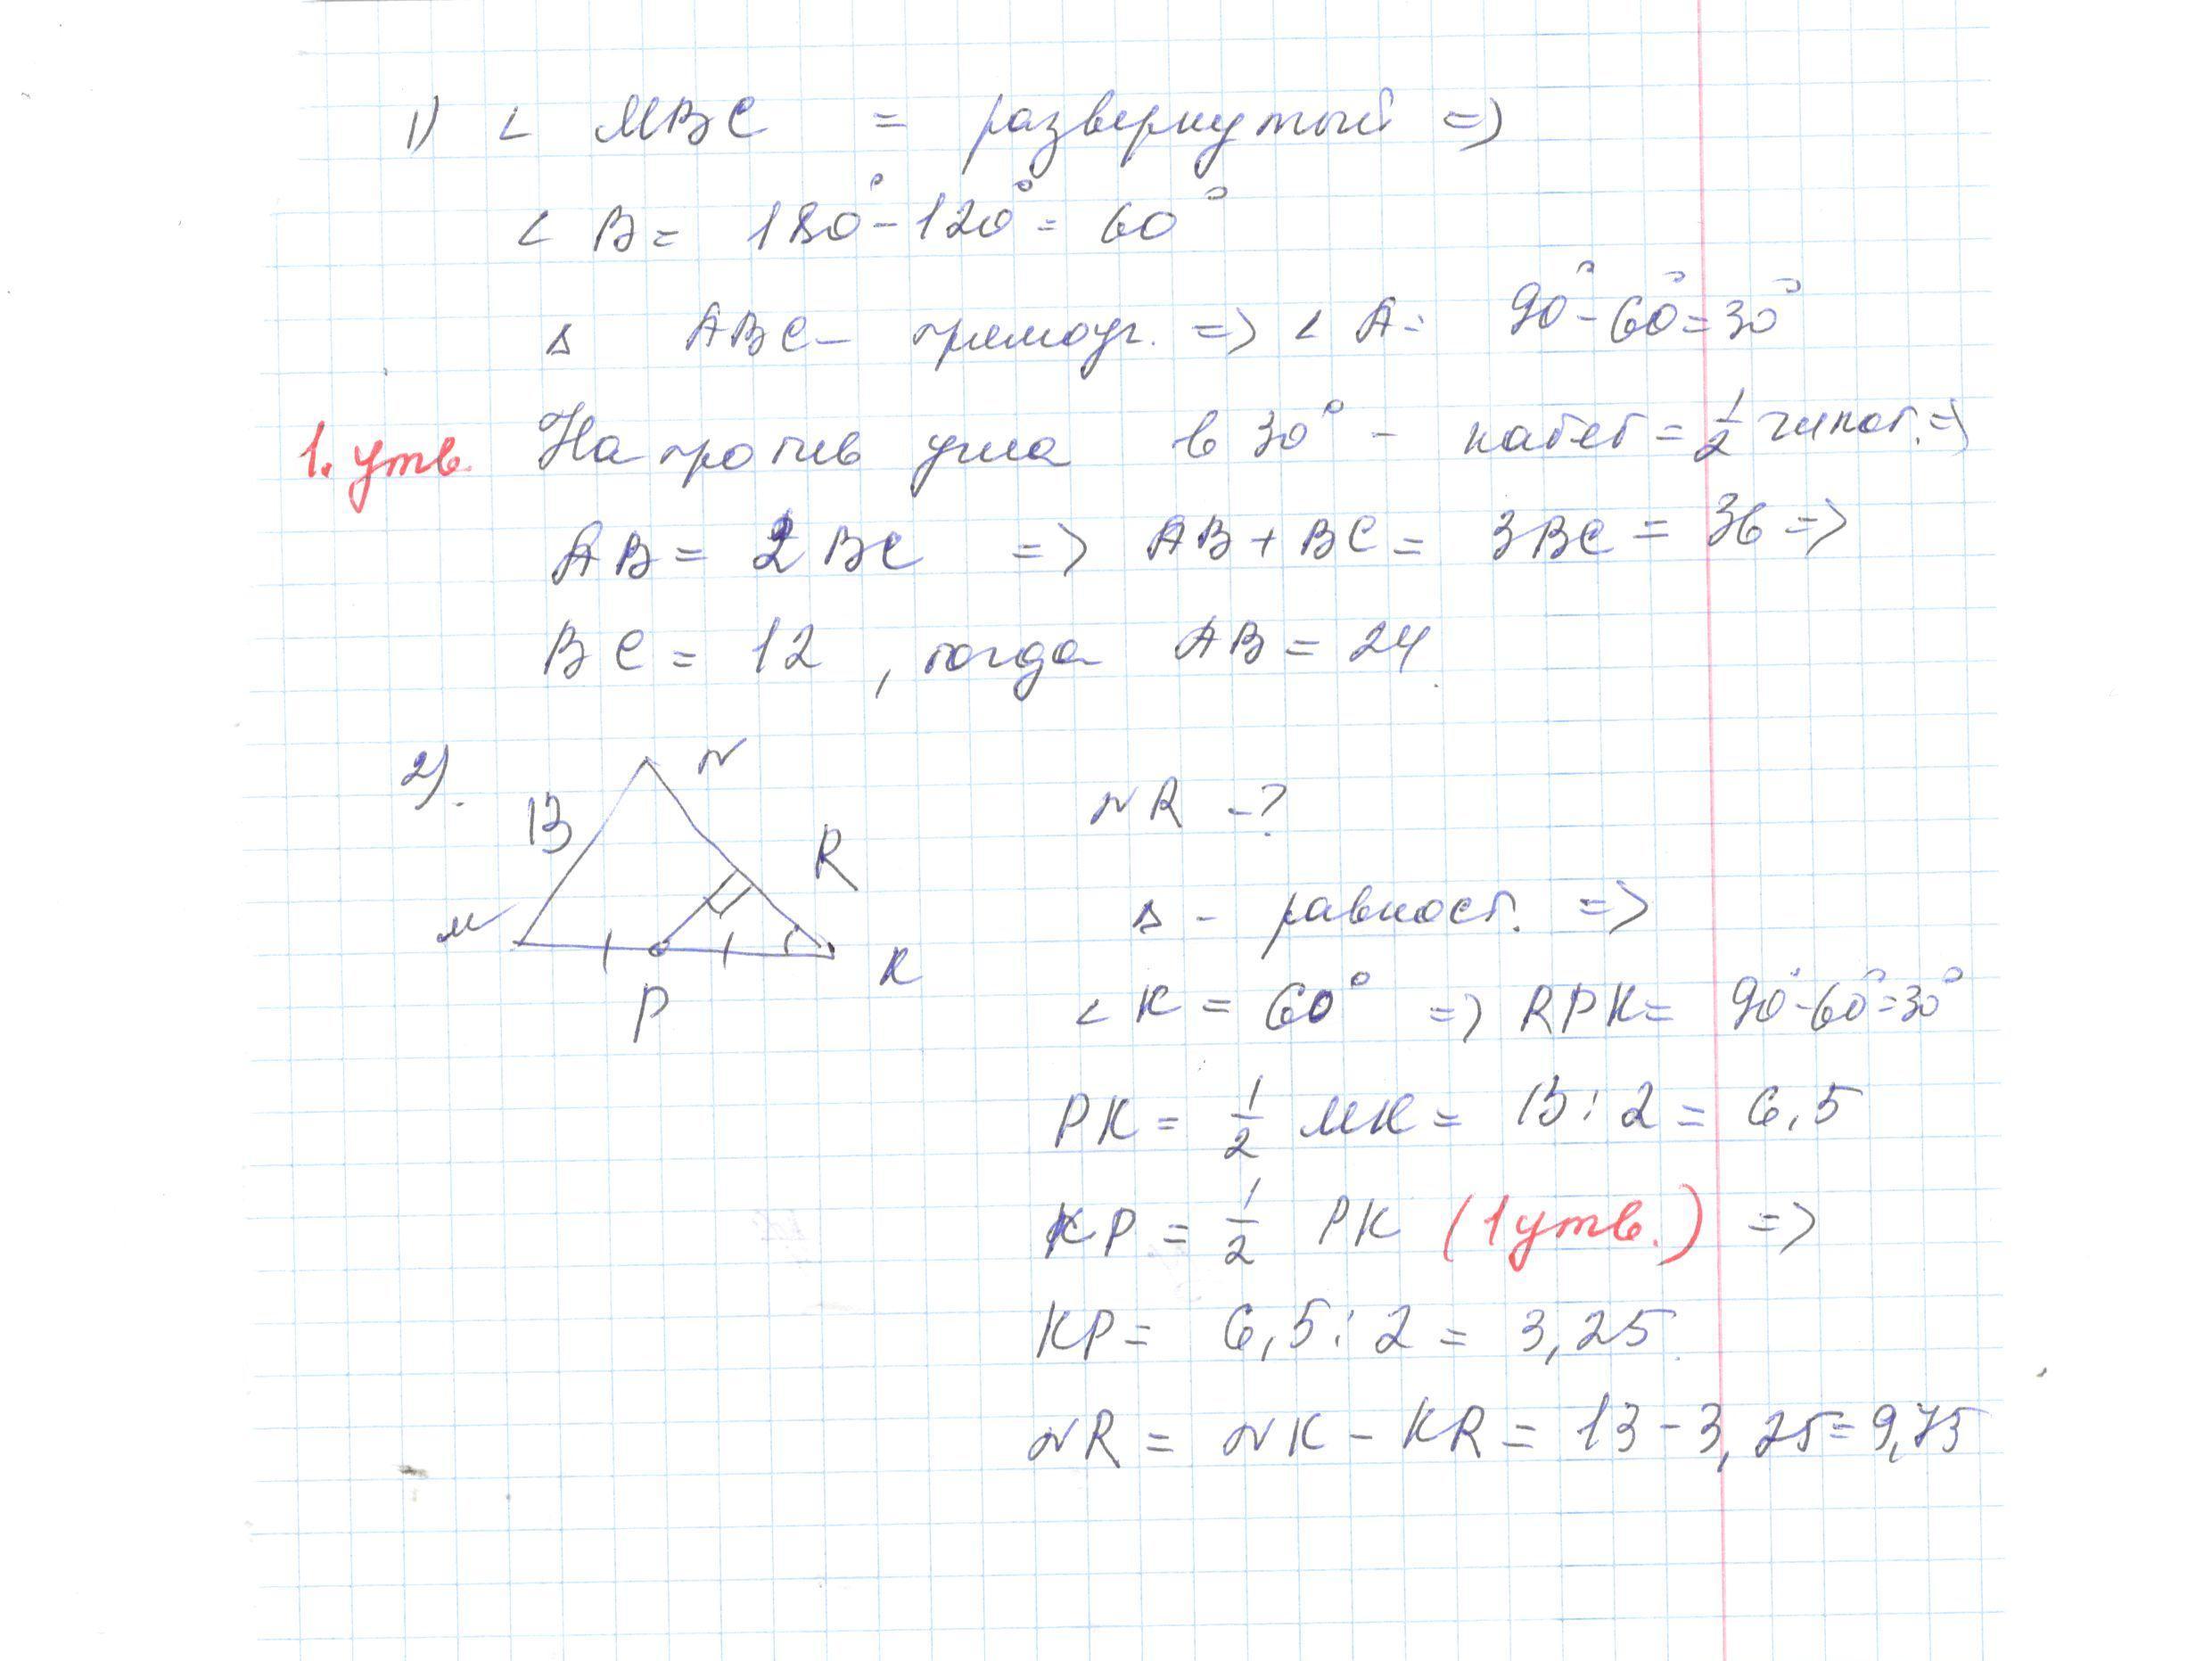 1) ∠ MBC = развернутый =>
∠ B = 180° - 120° = 60°
Δ ABC - прямоуг. => ∠ A = 90° - 60° = 30°
1. утв. Напротив угла в 30° - катет = 1/2 гипот. =>
AB = 2 BC => AB + BC = 3BC = 36 =>
BC = 12, тогда AB = 24.
2).
N
13
R
M
K
P
NR - ?
Δ - равност. =>
∠ K = 60° => RPK = 90° - 60° = 30°
PK = 1/2 MK = 13 : 2 = 6,5
KP = 1/2 PK (1 утв.) =>
KP = 6,5 : 2 = 3,25.
NR = NK - KR = 13 - 3,25 = 9,75